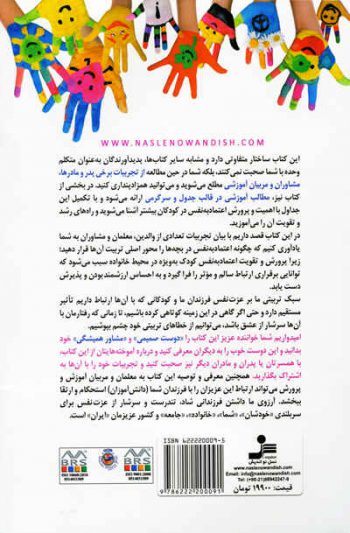 WWW.NASLENOWANDISH.COM
این کتاب ساختار متفاوتی دارد و مشابه سایر کتاب‌ها، پدیدآورندگان به‌عنوان متکلم
وحده با شما صحبت نمی‌کنند، بلکه شما در حین مطالعه از تجربیات برخی پدر و مادرها،
مشاوران و مربیان آموزشی مطلع می‌شوید و می‌توانید همزادپنداری کنید. در بخشی از
کتاب نیز، مطالب آموزشی در قالب جدول و سرگرمی ارائه می‌شود و با تکمیل این
جداول با اهمیت و پرورش اعتمادبه‌نفس در کودکان بیشتر آشنا می‌شوید و راه‌های رشد
و تقویت آن را می‌آموزید.
در این کتاب قصد داریم با بیان تجربیات تعدادی از والدین، معلمان و مشاوران به شما
یادآوری کنیم که چگونه اعتمادبه‌نفس در بچه‌ها را محور اصلی تربیت آن‌ها قرار دهید؛
زیرا پرورش و تقویت اعتمادبه‌نفس کودک به‌ویژه در محیط خانواده سبب می‌شود که
توانایی برقراری ارتباط سالم و مؤثر را فرا گیرد و به احساس ارزشمندبودن و پذیرش
دست یابد.
سبک تربیتی ما بر عزت‌نفس فرزندان ما و کودکانی که با آن‌ها ارتباط داریم تأثیر
مستقیم دارد و حتی اگر گاهی در این زمینه کوتاهی کرده باشیم، تا زمانی که رفتارمان با
آن‌ها سرشار از عشق باشد، می‌توانیم از خطاهای تربیتی خود چشم بپوشیم.
امیدواریم شما خواننده عزیز این کتاب را «دوست صمیمی» و «مشاور همیشگی» خود
بدانید و این دوست خوب را به دیگران معرفی کنید و درباره آموخته‌هایتان از این کتاب،
با همسرتان یا پدران و مادران دیگر نیز صحبت کنید و تجربیات خود را با آن‌ها به
اشتراک بگذارید. همچنین معرفی و توصیه این کتاب به معلمان و مربیان آموزش و
پرورش می‌تواند ارتباط این عزیزان را با فرزندان شما (دانش‌آموزان) استحکام و ارتقا
ببخشد. آرزوی ما داشتن فرزندانی شاد، تندرست و سرشار از عزت‌نفس برای
سربلندی «خودشان»، «شما»، «خانواده»، «جامعه» و کشور عزیزمان «ایران» است.
ISBN 622220009-5
9 786222 200091
BRS
BRS
نسل نواندیش
naslenowandish.com
Email: info@naslenowandish.com
Tel: (+98-21)88942247-9
قیمت: ۱۹۹۰۰ تومان